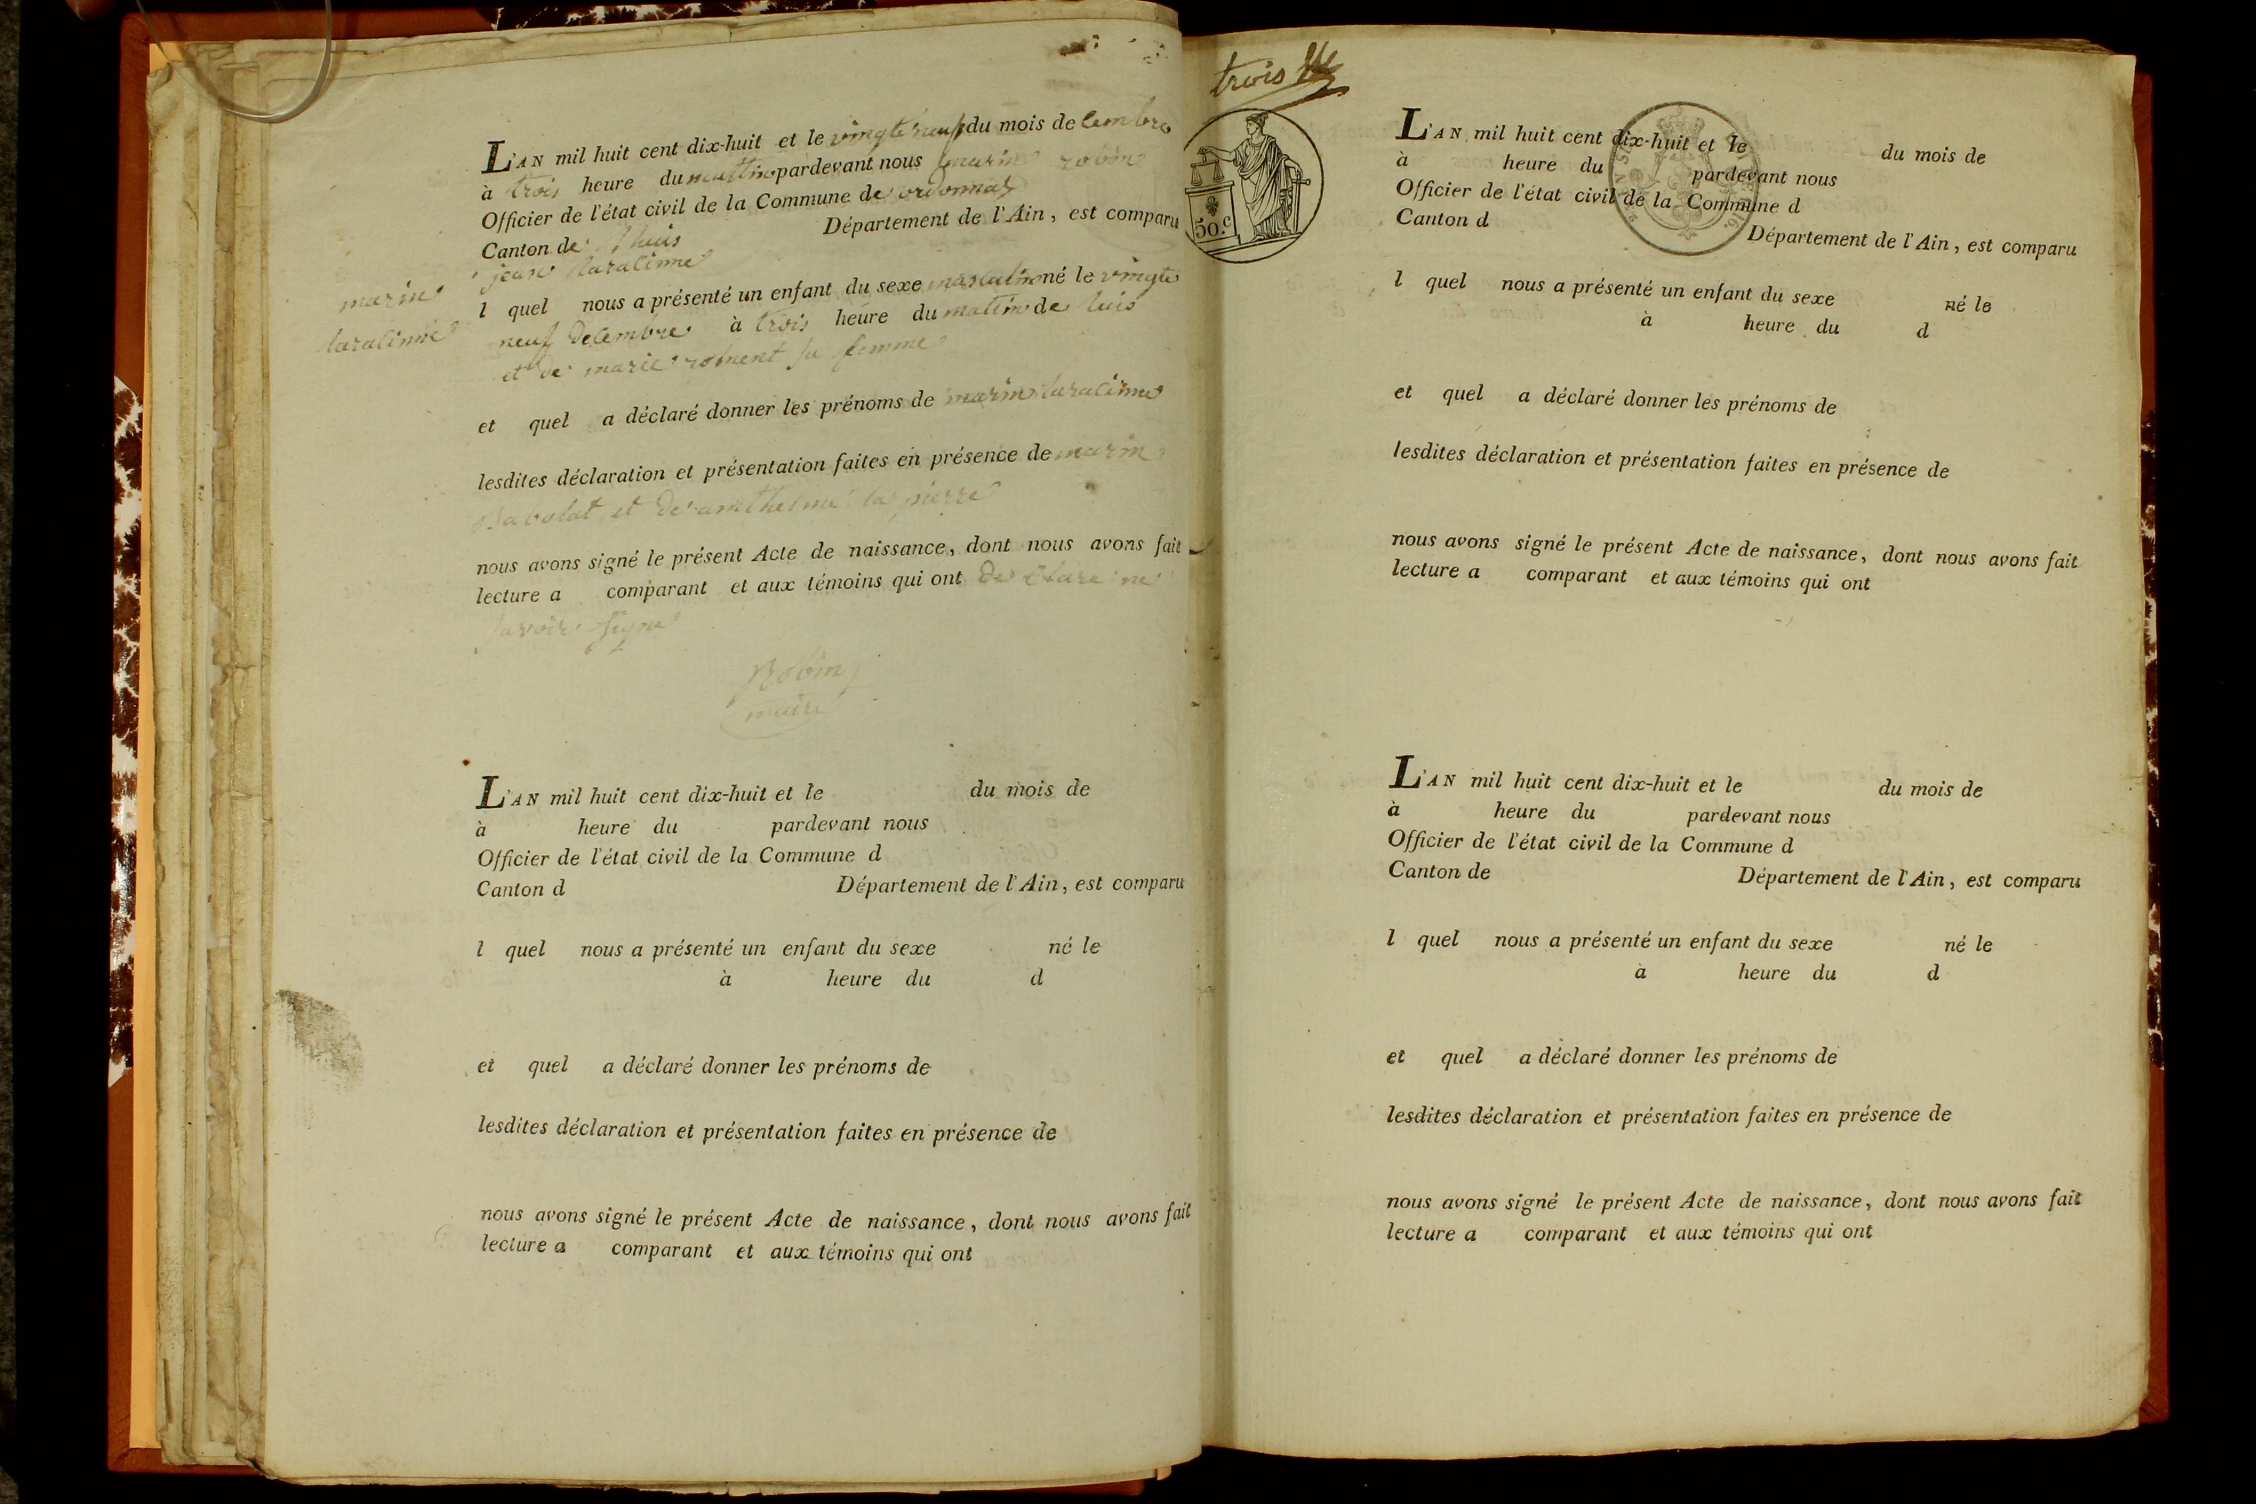 L'AN mil huit cent dix-huit et le vingte neuf du mois de cembre
à trois heure du mattin pardevant nous marin robin
Officier de l'état civil de la Commune de ordonnaz
Canton de lhuis Département de l'Ain, est comparu
jean
marin
l quel nous a présenté un enfant du sexe masculin né le vingte
neuf decembre à trois heure du matin de luis
et de marie sa femme
et quel a déclaré donner les prénoms de marin
lesdites déclaration et présentation faites en présence de marin
et de anthelme la pierre
nous avons signé le présent Acte de naissance, dont nous avons fait
lecture a comparant et aux témoins qui ont de clare ne
savoir signe
Robin
maire
L'AN mil huit cent dix-huit et le du mois de
à heure du pardevant nous
Officier de l'état civil de la Commune d
Canton d Département de l'Ain, est comparu
l quel nous a présenté un enfant du sexe né le
à heure du d
et quel a déclaré donner les prénoms de
lesdites déclaration et présentation faites en présence de
nous avons signé le présent Acte de naissance, dont nous avons fait
lecture a comparant et aux témoins qui ont
trois
50.c
L'AN mil huit cent dix-huit et le du mois de
à heure du pardevant nous
Officier de l'état civil de la Commune d
Canton d Département de l'Ain, est comparu
l quel nous a présenté un enfant du sexe né le
à heure du d
et quel a déclaré donner les prénoms de
lesdites déclaration et présentation faites en présence de
nous avons signé le présent Acte de naissance, dont nous avons fait
lecture a comparant et aux témoins qui ont
L'AN mil huit cent dix-huit et le du mois de
à heure du pardevant nous
Officier de l'état civil de la Commune d
Canton de Département de l'Ain, est comparu
l quel nous a présenté un enfant du sexe né le
à heure du d
et quel a déclaré donner les prénoms de
lesdites déclaration et présentation faites en présence de
nous avons signé le présent Acte de naissance, dont nous avons fait
lecture a comparant et aux témoins qui ont